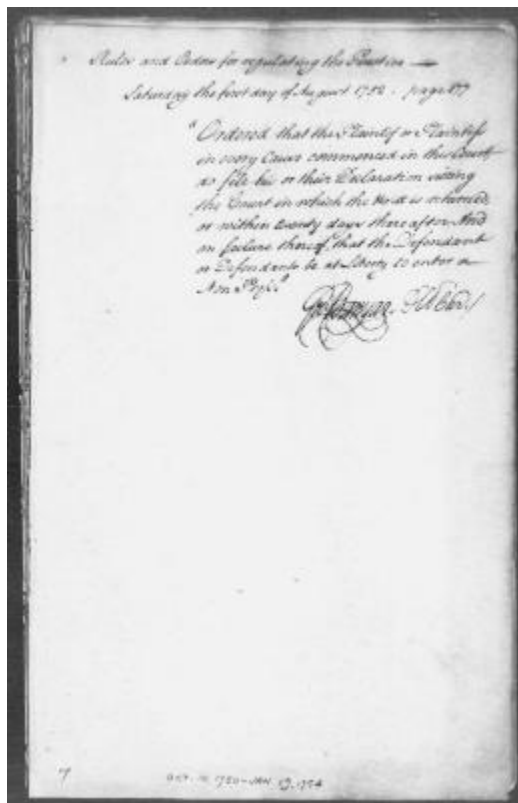 Rules and Orders for regulating the Practice
Saturday the first day of August 1752. page 177
"Ordered that the Plaintif or Plaintifs
in every Cause commenced in this Court
do file his or their Declaration sitting
the Court in which the Writ is returned
or within twenty days thereafter And
on failure thereof, that the Defendant
or Defendants be at Liberty to enter a
Non Pros
OCT. 10 1750-JAN. 19, 1754